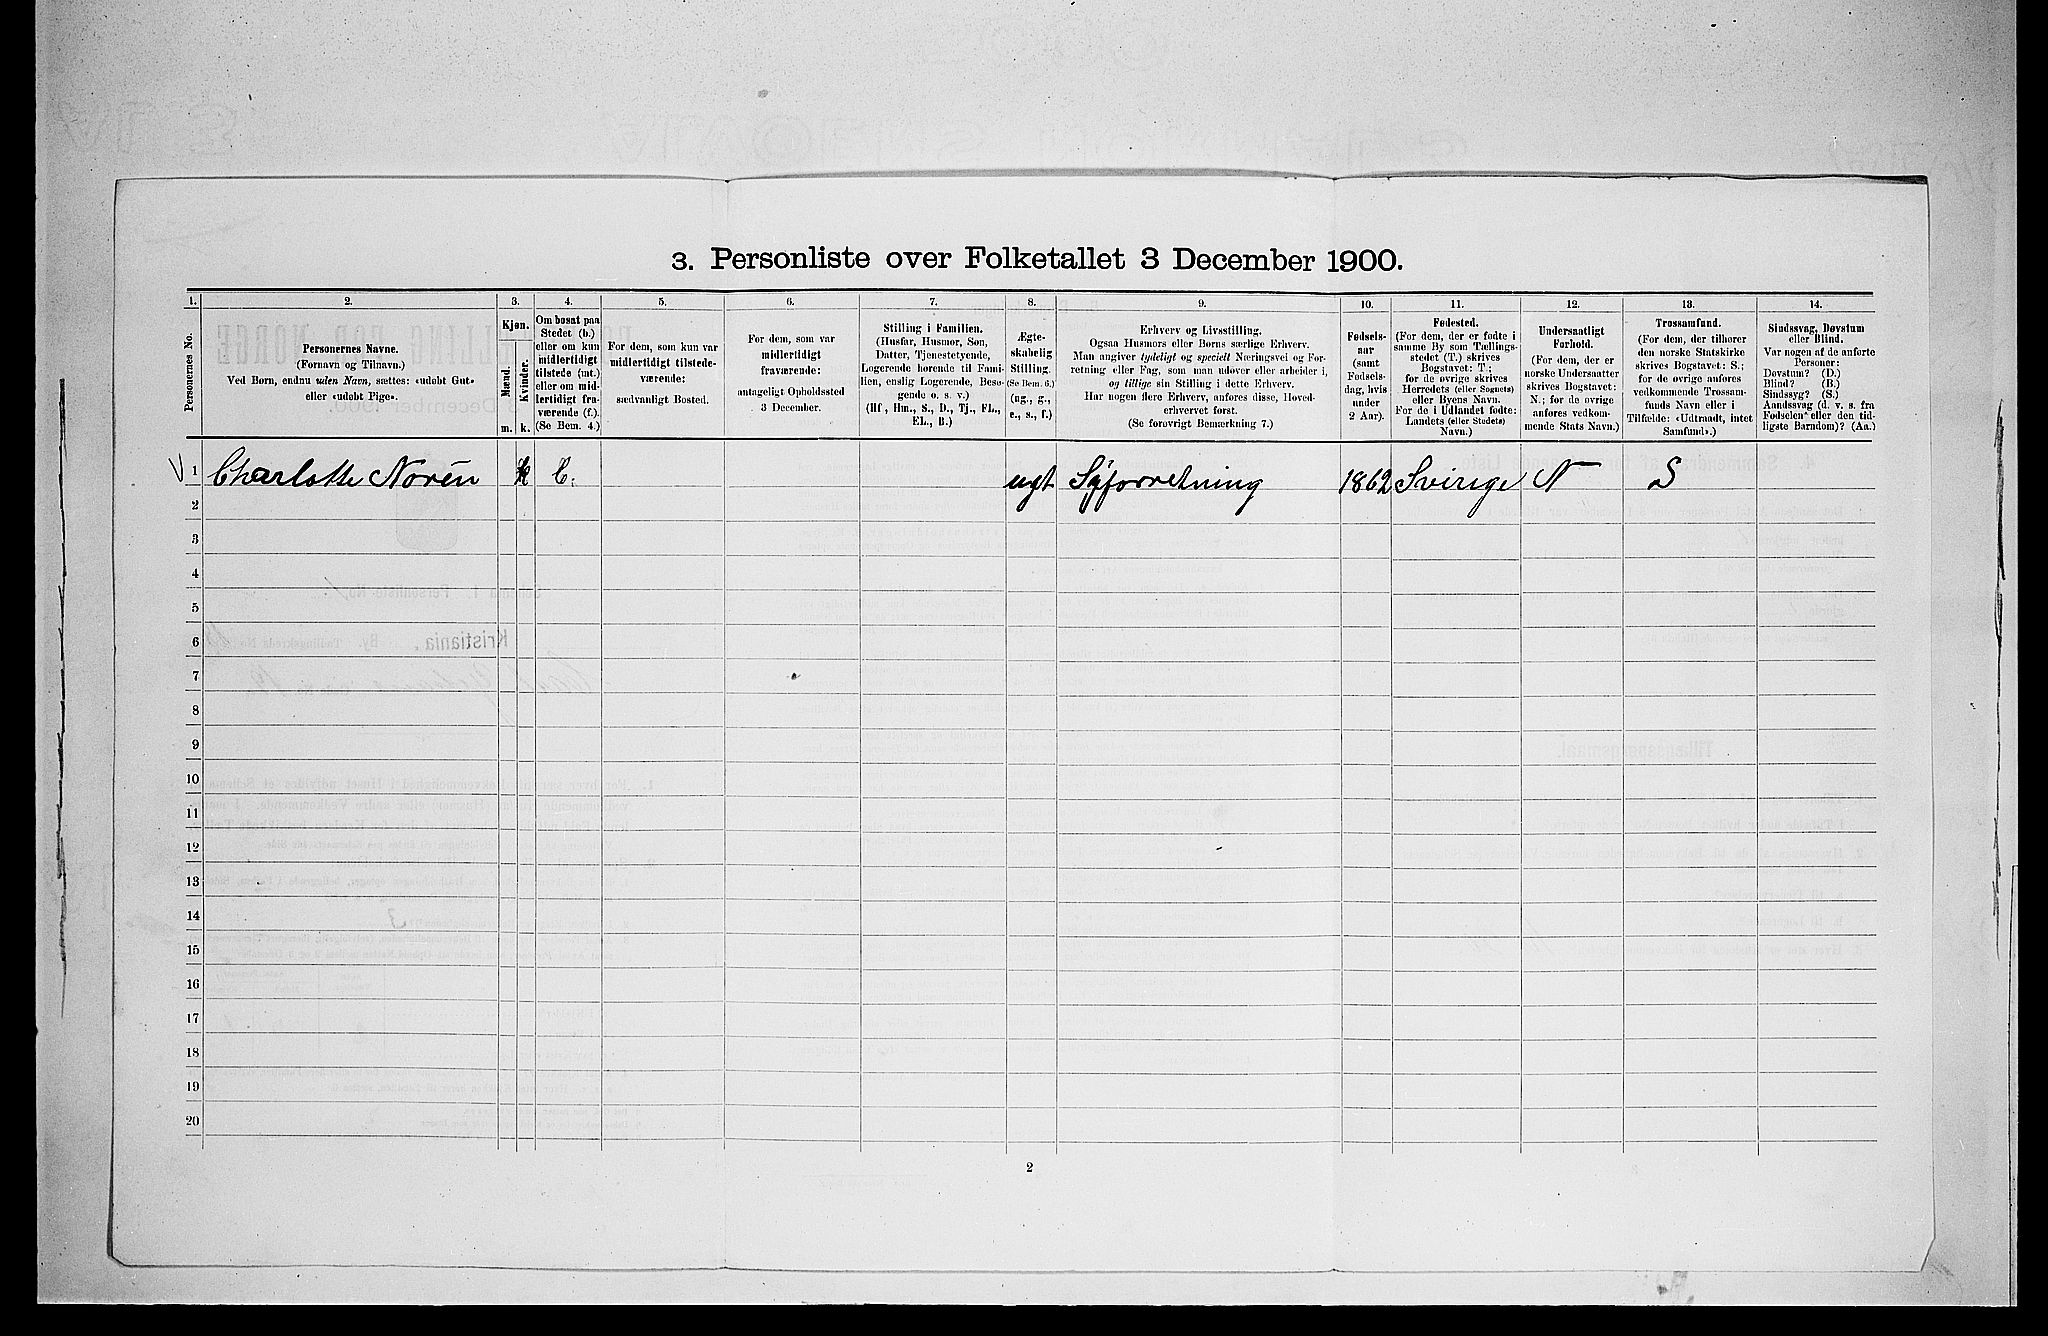 3. Personliste over Folketallet 3 December 1900.
1. 2. 3. 4. 5. 6. 7. 8. 9. 10. 11. 12. 13. 14.
Personernes No.
Personernes Navne.
(Fornavn og Tilnavn.)
Ved Børn, endnu uden Navn, sættes: «udøbt Gut»
eller «udøbt Pige».
Kjøn.
Mænd.
Kvinder.
m. k.
Om bosat paa
Stedet (b.)
eller om kun
midlertidigt
tilstede (mt.)
eller om mid-
lertidigt fra-
værende (f.).
(Se Bem. 4.)
For dem, som kun var
midlertidigt tilstede-
værende:
sædvanligt Bosted.
For dem, som var
midlertidigt
fraværende:
antageligt Opholdssted
3 December.
Stilling i Familien.
(Husfar, Husmor, Søn,
Datter, Tjenestetyende,
Logerende hørende til Fami-
lien, enslig Logerende, Besø-
gende o. s. v.)
(Hf., Hm., S., D., Tj., FL.,
EL., B.)
Ægte-
skabelig
Stilling.
(Se Bem. 6.)
(ug., g.,
e., s., f.)
Erhverv og Livsstilling.
Ogsaa Husmors eller Børns særlige Erhverv.
Man angiver tydeligt og specielt Næringsvei og For-
retning eller Fag, som man udøver eller arbeider i,
og tillige sin Stilling i dette Erhverv.
Har nogen flere Erhverv, anføres disse, Hoved-
erhvervet først.
(Se forøvrigt Bemærkning 7.)
Fødsels-
aar
(samt
Fødsels-
dag, hvis
under
2 Aar).
Fødested.
(For dem, der er fødte i
samme By som Tællings-
stedet (T.) skrives
Bogstavet: T.;
for de øvrige skrives
Herredets (eller Sognets)
eller Byens Navn.
For de i Udlandet fødte:
Landets (eller Stedets)
Navn.)
Undersaatligt
Forhold.
(For dem, der er
norske Undersaatter
skrives Bogstavet:
N.; for de øvrige
anføres vedkom-
mende Stats Navn.)
Trossamfund.
(For dem, der tilhører
den norske Statskirke
skrives Bogstavet: S.;
for de øvrige anføres
vedkommende Trossam-
funds Navn eller i
Tilfælde: «Udtraadt, intet
Samfund».)
Sindssvag, Døvstum
eller Blind.
Var nogen af de anførte
Personer:
Døvstum? (D.)
Blind? (B.)
Sindssyg? (S.)
Aandssvag (d. v. s. fra
Fødselen eller den tid-
ligste Barndom)? (Aa.)
1 Charlotte Norén k b. ugt Syforretning 1862 Svirige N S
2
3
4
5
6
7
8
9
10
11
12
13
14
15
16
17
18
19
20
2